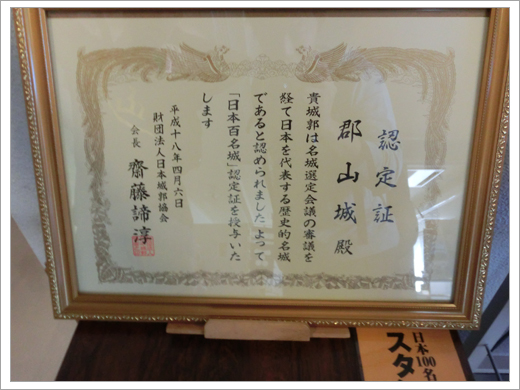 認定証
郡山城殿
貴城郭は名城選定会議の審議を
経て日本を代表する歴史的名城
であると認められました よって
「日本百名城」認定証を授与いた
します
平成十八年四月六日
財団法人日本城郭協会
会長 齋藤諦淳
日本100名
スタ